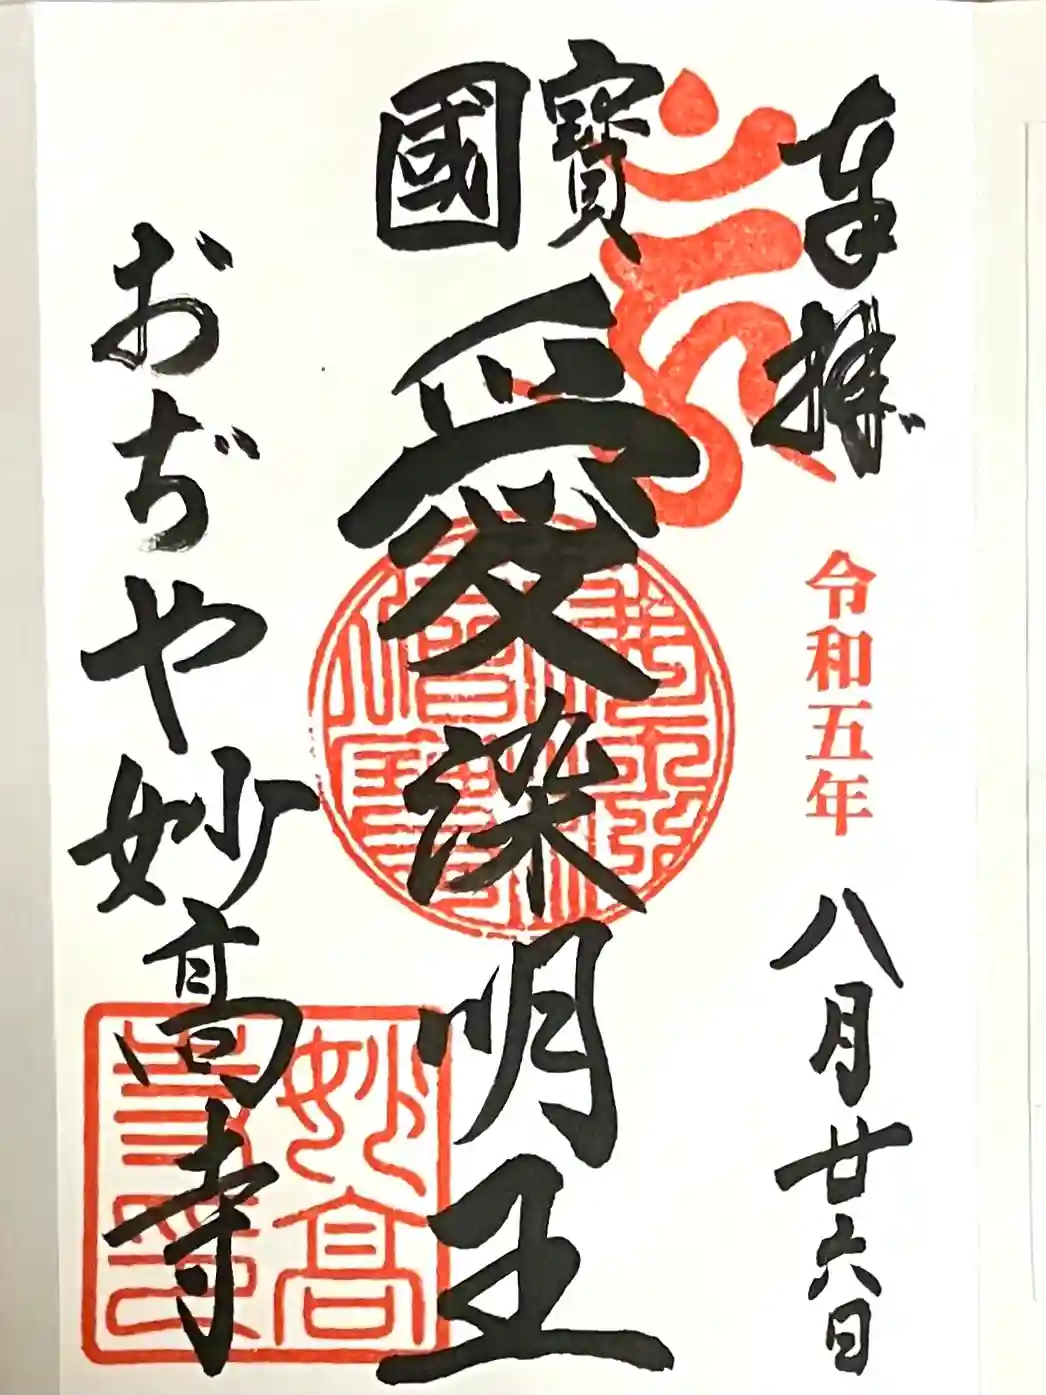 奉拝
令和五年 八月廿六日
國寳
愛染明王
おぢや妙高寺
妙高
寺印